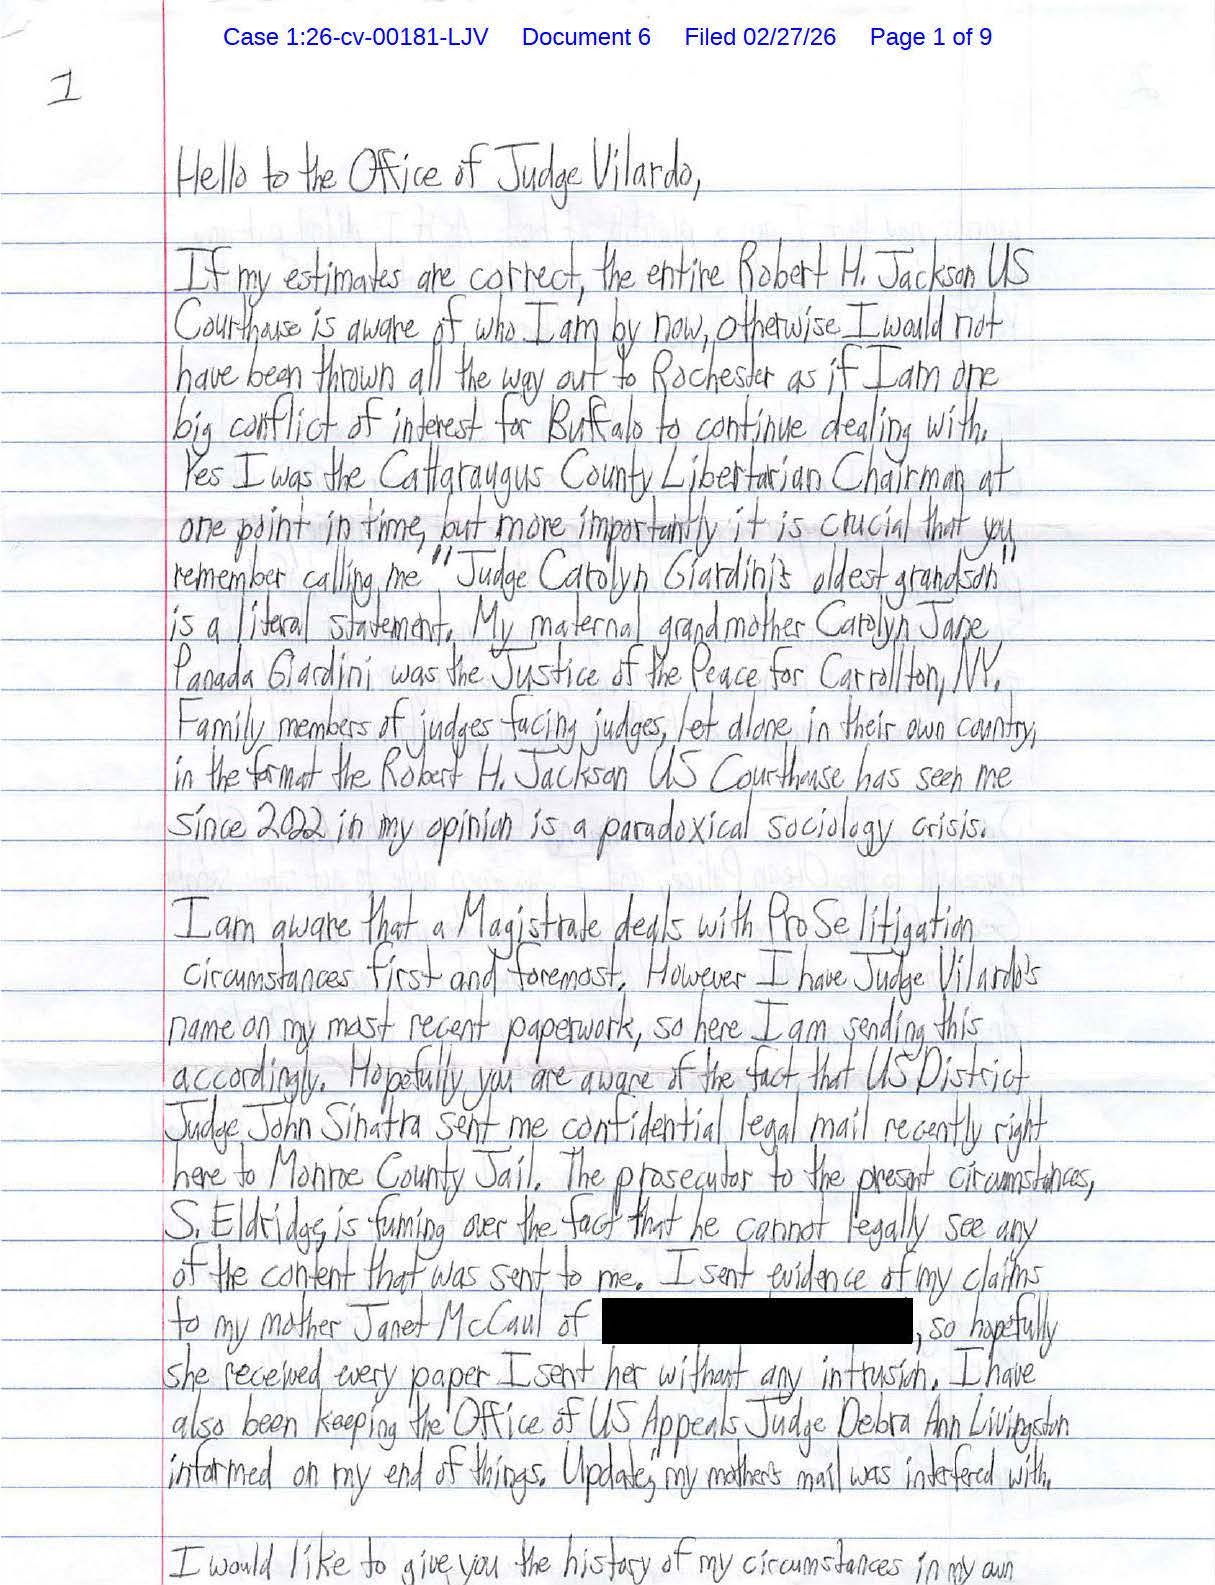 Case 1:26-cv-00181-LJV Document 6 Filed 02/27/26 Page 1 of 9
1
Hello to the Office of Judge Vilardo,
If my estimates are correct, the entire Robert H. Jackson US
Courthouse is aware of who I am by now, otherwise I would not
have been thrown all the way out to Rochester as if I am one
big conflict of interest for Buffalo to continue dealing with.
Yes I was the Cattaraugus County Libertarian Chairman at
one point in time, but more importantly it is crucial that you
remember calling me "Judge Carolyn Giardini's oldest grandson"
is a literal statement. My maternal grandmother Carolyn Jane
Panada Giardini was the Justice of the Peace for Carrollton, NY.
Family members of judges facing judges, let alone in their own country,
in the format the Robert H. Jackson US Courthouse has seen me
since 2022 in my opinion is a paradoxical sociology crisis.
I am aware that a Magistrate deals with Pro Se litigation
circumstances first and foremost. However I have Judge Vilardo's
name on my most recent paperwork, so here I am sending this
accordingly. Hopefully you are aware of the fact that US District
Judge John Sinatra sent me confidential legal mail recently right
here to Monroe County Jail. The prosecutor to the present circumstances,
S. Eldridge, is fuming over the fact that he cannot legally see any
of the content that was sent to me. I sent evidence of my claims
to my mother Janet McCaul of , so hopefully
she received every paper I sent her without any intrusion. I have
also been keeping the Office of US Appeals Judge Debra Ann Livingston
informed on my end of things. Update, my mother's mail was interfered with.
I would like to give you the history of my circumstances in my own